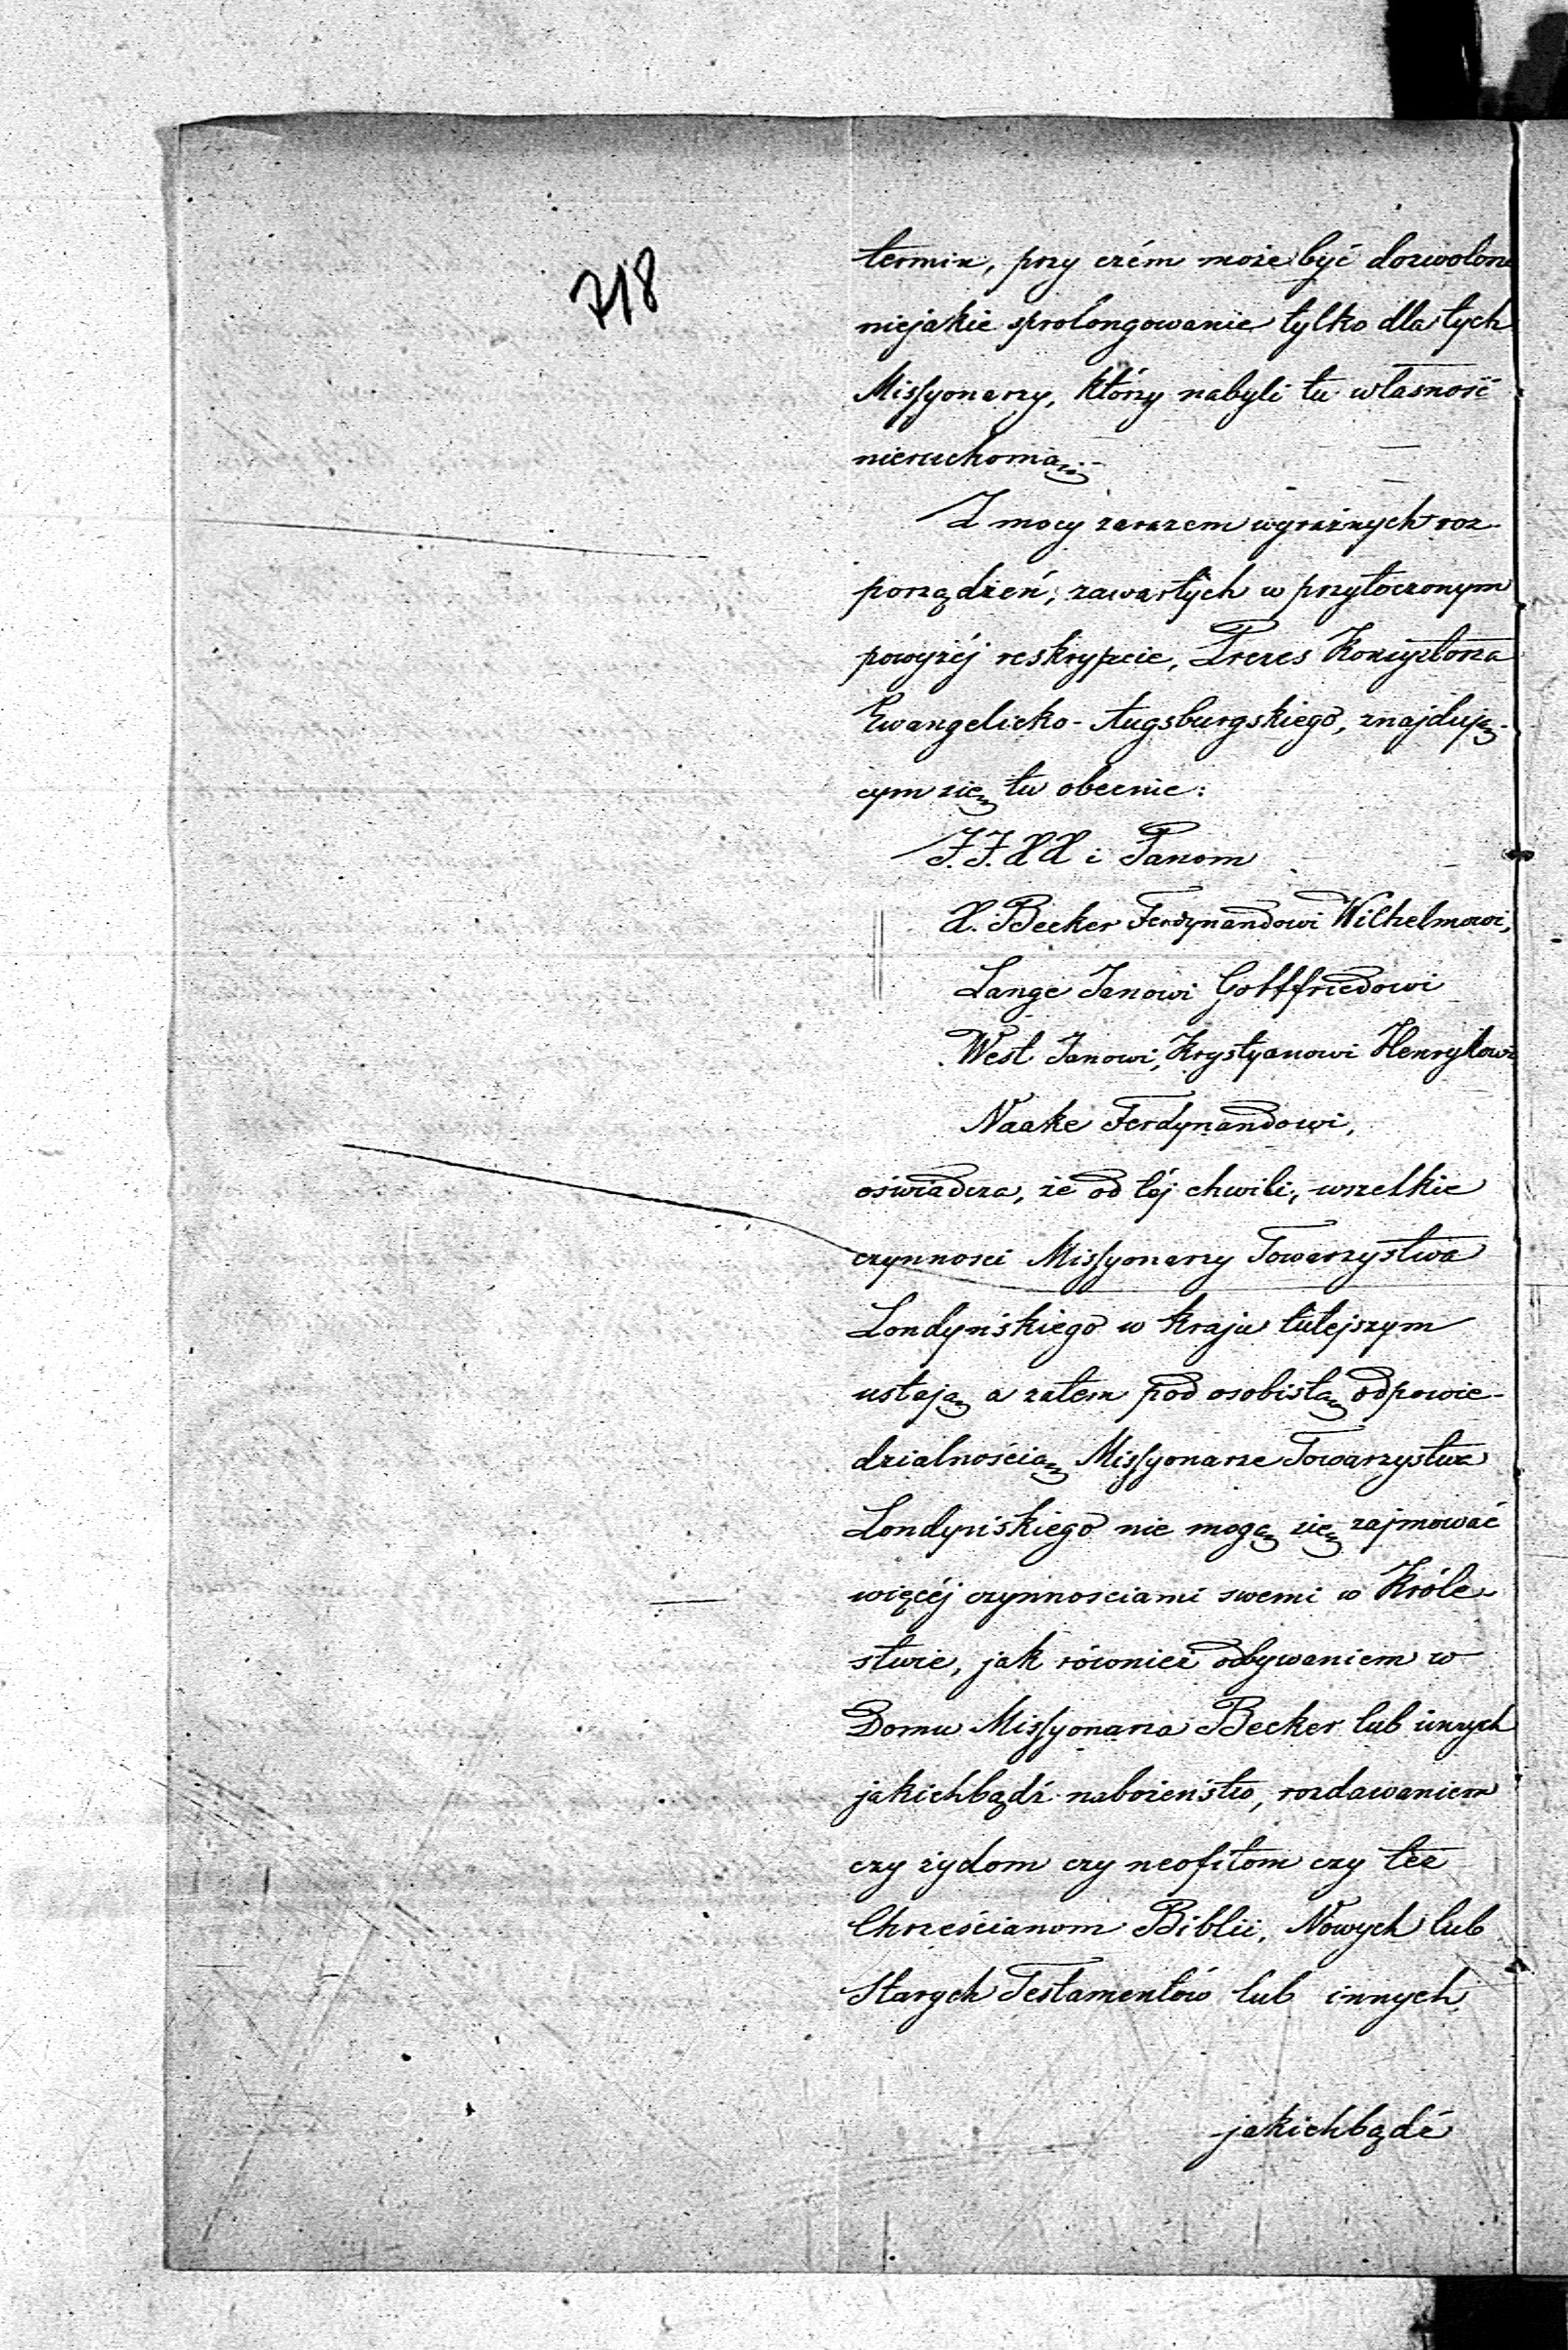 718
termin, przy czém może być dozwolone
niejakie sprolongowanie tylko dla tych
Missyonarzy, którzy nabyli tu własność
nieruchomą.
Z mocy zarazem wyraźnych roz-
porządzeń, zawartych w przytoczonym
powyżéj reskrypcie, Prezes Konsystorza
Ewangelicko-Augsburgskiego, znajdują-
cym się tu obecnie:
J.J. XX i Panom
X. Becker Ferdynandowi Wilhelmowi,
Lange Janowi Gottfriedowi
West Janowi, Krystyanowi Henrykowi
Naake Ferdynandowi,
oświadcza, że od téj chwili, wszelkie
czynnosci Missyonarzy Towarzystwa
Londyńskiego w kraju tutejszym
ustają a zatem pod osobistą odpowie-
dzialnością Missyonarze Towarzystwa
Londyńskiego nie mogą się zajmować
więcéj czynnosciami swemi w Króle-
stwie, jak równiez odbywaniem w
Domu Missyonarza Becker lub innych
jakichbądź nabożeństw, rozdawaniem
czy żydom czy neofitom czy też
Chrześcianom Biblii, Nowych lub
Starych Testamentów lub innych
jakichbądź